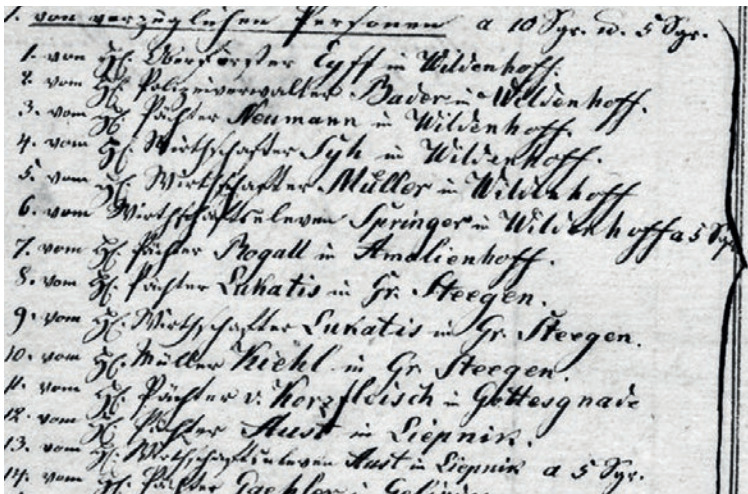 1. von vorzüglichen Personen a 10 Sgr. u. 5 Sgr.
1. vom H. Oberförster Eyff in Wildenhoff.
2. vom H. Polizeiverwalter Bader in Wildenhoff.
3. vom H. Pächter Neumann in Wildenhoff.
4. vom H. Wirthschafter in Wildenhoff.
5. vom H. Wirthschafter Müller in Wildenhoff
6. vom Wirthschaftseleven Springer in Wildenhoff a 5 Sgr.
7. vom H. Pächter Rogall in Amalienhoff.
8. vom H. Pächter Lukatis in Gr. Steegen.
9. vom H. Wirthschafter Lukatis in Gr. Steegen.
10. vom H. Müller Kiehl in Gr. Steegen.
11. vom H. Pächter v. Korzfleisch in Gottesgnade
12. vom H. Pächter Aust in Liepnik.
13. vom H. Wirthschaftseleven Aust in Liepnik a 5 Sgr.
14. vom H. Pächter in